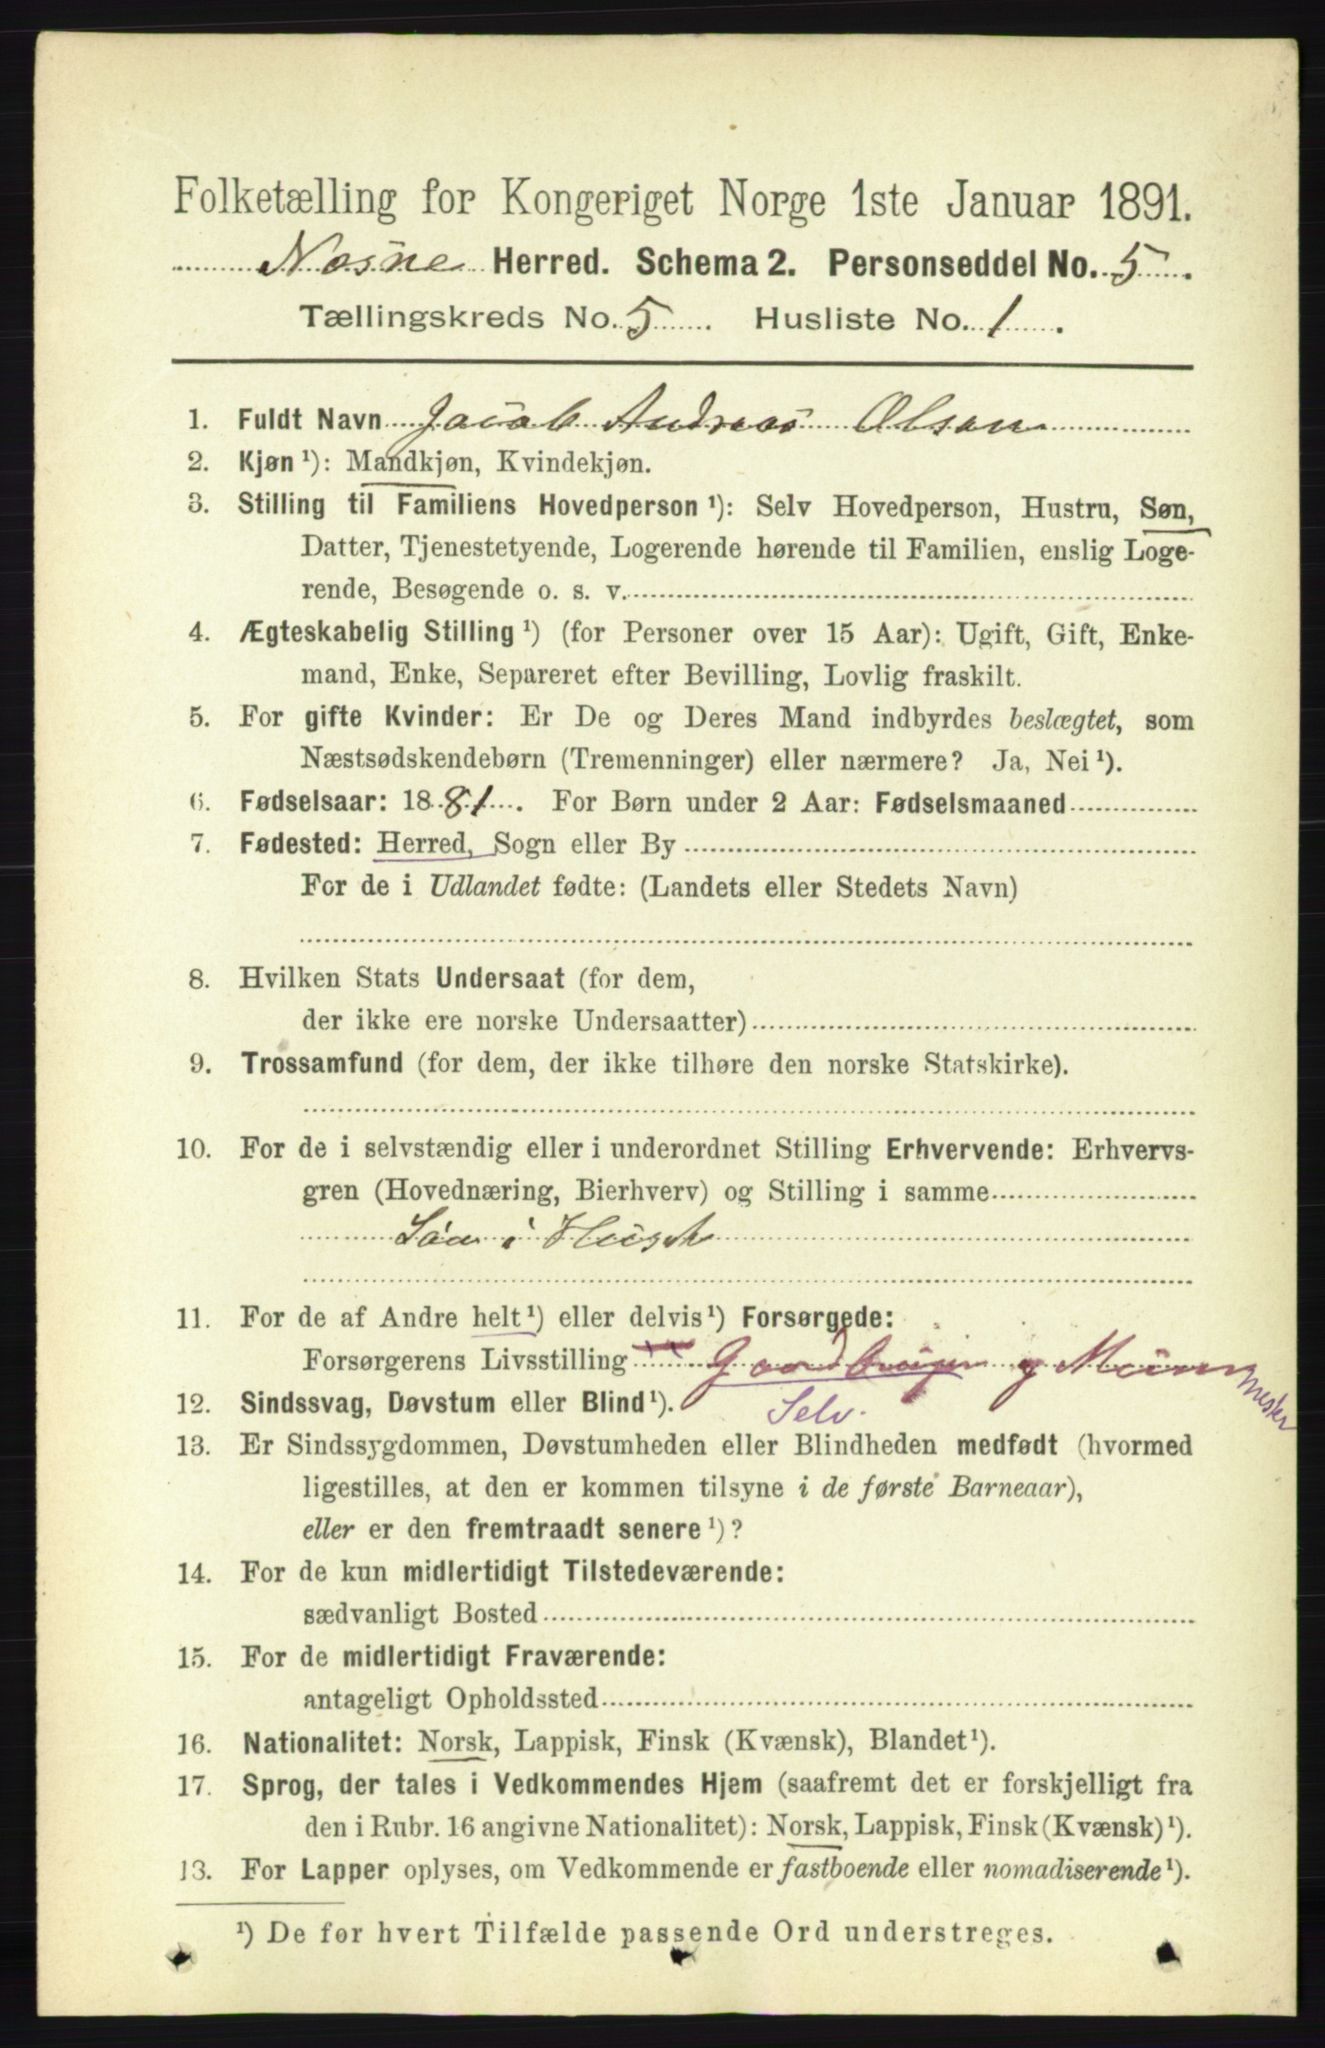 Folketælling for Kongeriget Norge 1ste Januar 1891.
Nesne Herred. Schema 2. Personseddel No. 5.
Tællingskreds No. 5. Husliste No. 1.
1. Fuldt Navn Jacob Andreas Olsen
2. Kjøn ¹): Mandkjøn, Kvindekjøn.
3. Stilling til Familiens Hovedperson ¹): Selv Hovedperson, Hustru, Søn,
Datter, Tjenestetyende, Logerende hørende til Familien, enslig Loge-
rende, Besøgende o. s. v.
4. Ægteskabelig Stilling ¹) (for Personer over 15 Aar): Ugift, Gift, Enke-
mand, Enke, Separeret efter Bevilling, Lovlig fraskilt.
5. For gifte Kvinder: Er De og Deres Mand indbyrdes beslægtet, som
Næstsødskendebørn (Tremenninger) eller nærmere? Ja, Nei ¹).
6. Fødselsaar: 1881. For Børn under 2 Aar: Fødselsmaaned
7. Fødested: Herred, Sogn eller By
For de i Udlandet fødte: (Landets eller Stedets Navn)
8. Hvilken Stats Undersaat (for dem,
der ikke ere norske Undersaatter)
9. Trossamfund (for dem, der ikke tilhøre den norske Statskirke).
10. For de i selvstændig eller i underordnet Stilling Erhvervende: Erhvervs-
gren (Hovednæring, Bierhverv) og Stilling i samme
Søn i Huset
11. For de af Andre helt ¹) eller delvis ¹) Forsørgede:
Forsørgerens Livsstilling Gaardbruger og Murmester
Selv.
12. Sindssvag, Døvstum eller Blind ¹).
13. Er Sindssygdommen, Døvstumheden eller Blindheden medfødt (hvormed
ligestilles, at den er kommen tilsyne i de første Barneaar),
eller er den fremtraadt senere ¹)?
14. For de kun midlertidigt Tilstedeværende:
sædvanligt Bosted
15. For de midlertidigt Fraværende:
antageligt Opholdssted
16. Nationalitet: Norsk, Lappisk, Finsk (Kvænsk), Blandet ¹).
17. Sprog, der tales i Vedkommendes Hjem (saafremt det er forskjelligt fra
den i Rubr. 16 angivne Nationalitet): Norsk, Lappisk, Finsk (Kvænsk) ¹).
13. For Lapper oplyses, om Vedkommende er fastboende eller nomadiserende ¹).
¹) De for hvert Tilfælde passende Ord understreges.